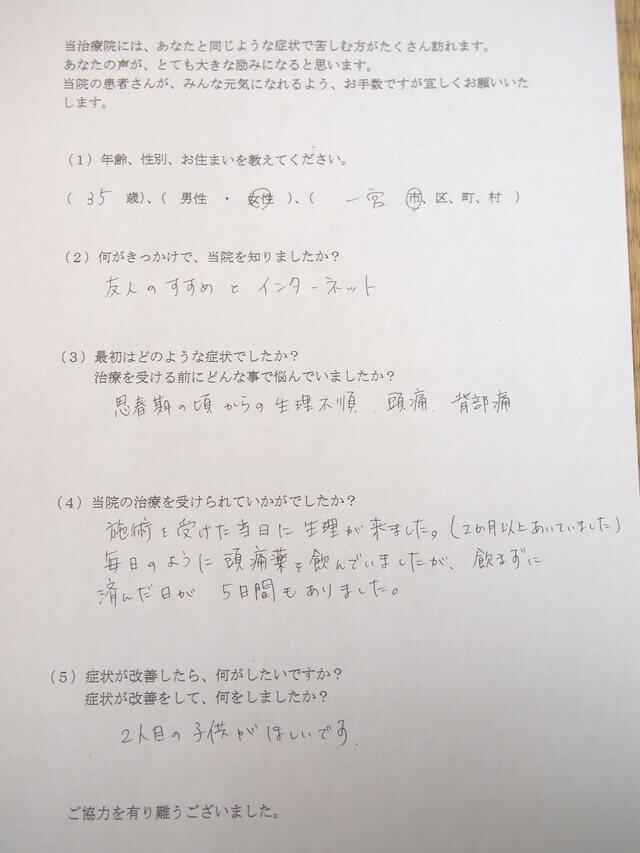 当治療院には、あなたと同じような症状で苦しむ方がたくさん訪れます。
あなたの声が、とても大きな励みになると思います。
当院の患者さんが、みんな元気になれるよう、お手数ですが宜しくお願いいた
します。
(1)年齢、性別、お住まいを教えてください。
( 35 歳)、( 男性 ・ 女性 )、( 一宮 市、区、町、村 )
(2)何がきっかけで、当院を知りましたか?
友人のすすめとインターネット
(3)最初はどのような症状でしたか?
治療を受ける前にどんな事で悩んでいましたか?
思春期の頃からの生理不順、頭痛、背部痛
(4)当院の治療を受けられていかがでしたか?
施術を受けた当日に生理が来ました。(2か月以上あいていました)
毎日のように頭痛薬を飲んでいましたが、飲まずに
済んだ日が 5日間もありました。
(5)症状が改善したら、何がしたいですか?
症状が改善をして、何をしましたか?
2人目の子供がほしいです。
ご協力を有り難うございました。